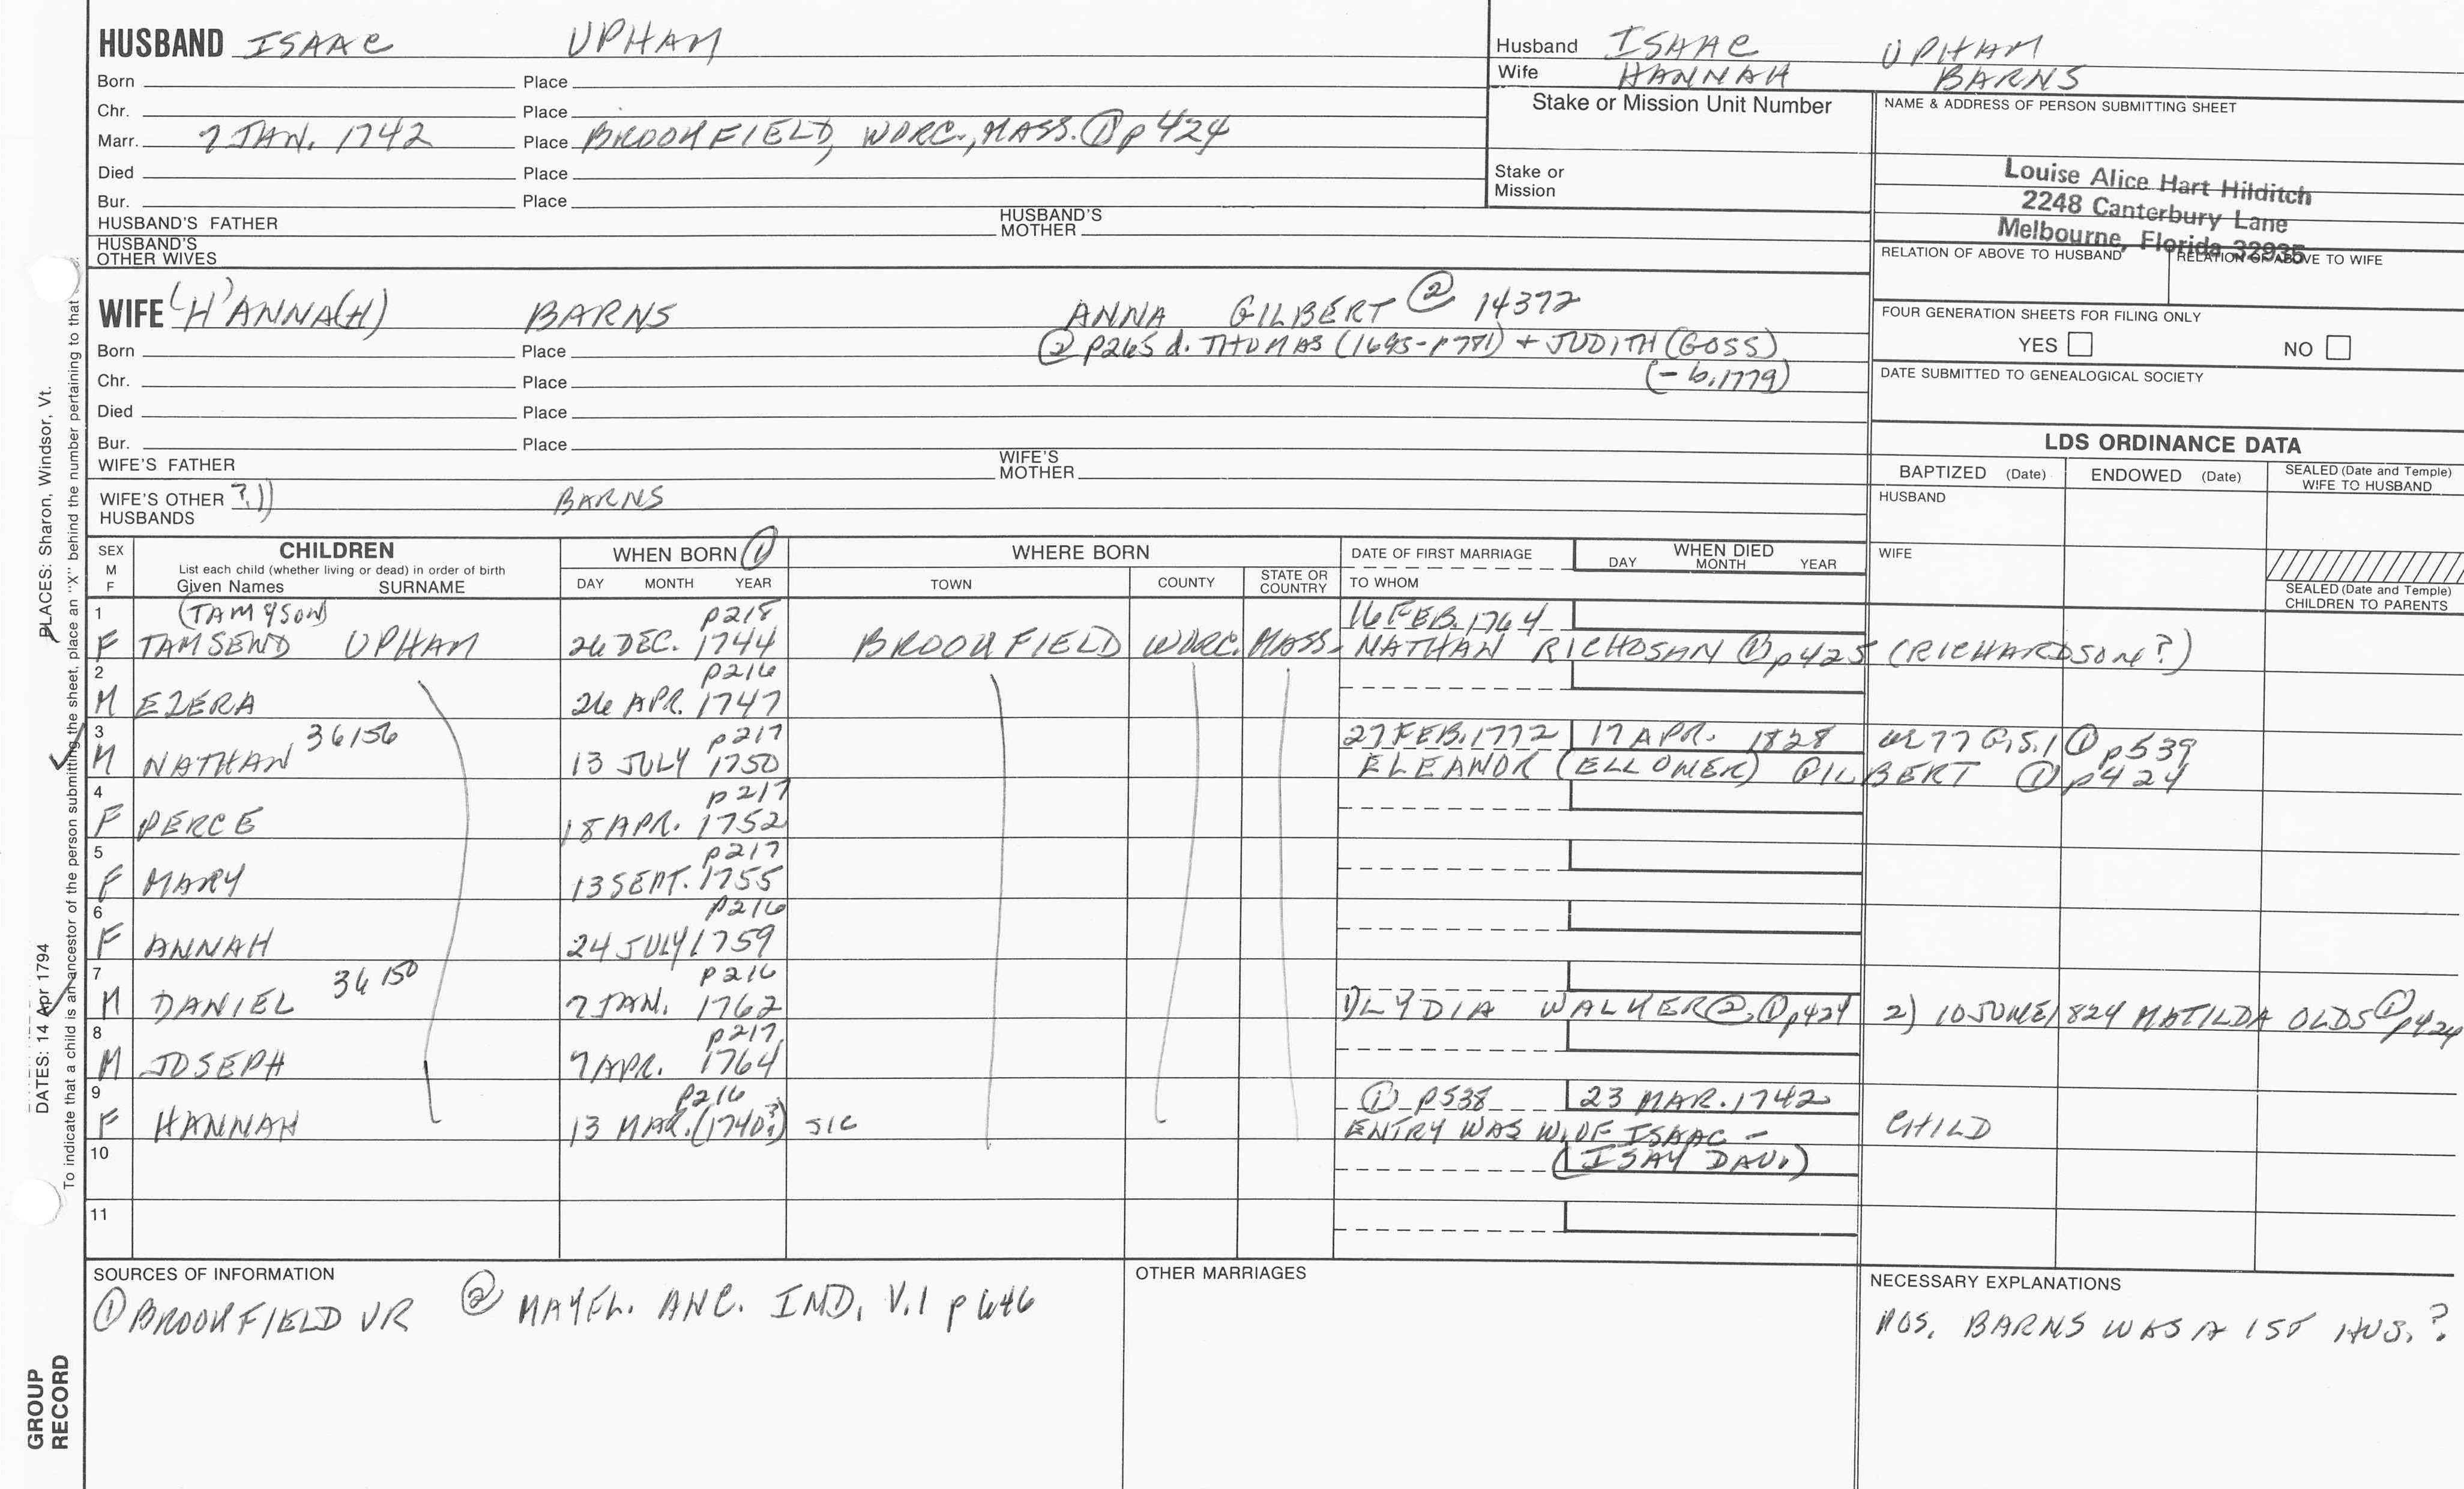 HUSBAND ISAAC UPHAM
Born Place
Chr. Place
Marr. 7 JAN. 1742 Place BROOKFIELD, WORC., MASS. ① p 424
Died Place
Bur. Place
HUSBAND'S FATHER HUSBAND'S MOTHER
HUSBAND'S OTHER WIVES
Husband ISAAC UPHAM
Wife HANNAH BARNS
Stake or Mission Unit Number
Stake or Mission
NAME & ADDRESS OF PERSON SUBMITTING SHEET
Louise Alice Hart Hilditch
2248 Canterbury Lane
Melbourne, Florida 32935
RELATION OF ABOVE TO HUSBAND RELATION OF ABOVE TO WIFE
FOUR GENERATION SHEETS FOR FILING ONLY
YES NO
DATE SUBMITTED TO GENEALOGICAL SOCIETY
WIFE (H)ANNA(H) BARNS ANNA GILBERT ② 14372
② p265 d. THOMAS (1695-p 1781) + JUDITH (GOSS)
(- b.1779)
Born Place
Chr. Place
Died Place
Bur. Place
WIFE'S FATHER WIFE'S MOTHER
WIFE'S OTHER HUSBANDS ?1) BARNS
LDS ORDINANCE DATA
BAPTIZED (Date) ENDOWED (Date) SEALED (Date and Temple) WIFE TO HUSBAND
HUSBAND
WIFE
SEALED (Date and Temple) CHILDREN TO PARENTS
SEX M F
CHILDREN
List each child (whether living or dead) in order of birth
Given Names SURNAME
WHEN BORN ①
DAY MONTH YEAR
WHERE BORN
TOWN COUNTY STATE OR COUNTRY
DATE OF FIRST MARRIAGE
TO WHOM
WHEN DIED
DAY MONTH YEAR
1 (TAMYSON) p218 16 FEB. 1764
F TAMSEND UPHAM 26 DEC. 1744 BROOKFIELD WORC. MASS. NATHAN RICHOSAN ① p425 (RICHARDSON?)
2 p216
M EZERA 26 APR. 1747
3 36156 p217 27 FEB. 1772 17 APR. 1828 ae 77 G.S.1 ① p539
M NATHAN 13 JULY 1750 ELEANOR (ELLONER) GILBERT ① p424
4 p217
F PERCE 18 APR. 1752
5 p217
F MARY 13 SEPT. 1755
6 p216
F ANNAH 24 JULY 1759
7 36150 p216
M DANIEL 7 JAN. 1762 1) LYDIA WALKER ②, ① p424 2) 10 JUNE 1824 MATILDA OLDS ① p424
8 p217
M JOSEPH 7 APR. 1764
9 p216 ① p538 23 MAR. 1742
F HANNAH 13 MAR. (1740?) SIC ENTRY WAS W. OF ISAAC - CHILD
10 (I SAY DAU.)
11
SOURCES OF INFORMATION
① BROOKFIELD VR ② MAYFL. ANC. IND. V.1 p 646
OTHER MARRIAGES
NECESSARY EXPLANATIONS
POS. BARNS WAS A 1ST HUS.?
PLACES: Sharon, Windsor, Vt.
DATES: 14 Apr 1794
To indicate that a child is an ancestor of the person submitting the sheet, place an "X" behind the number pertaining to that
GROUP RECORD